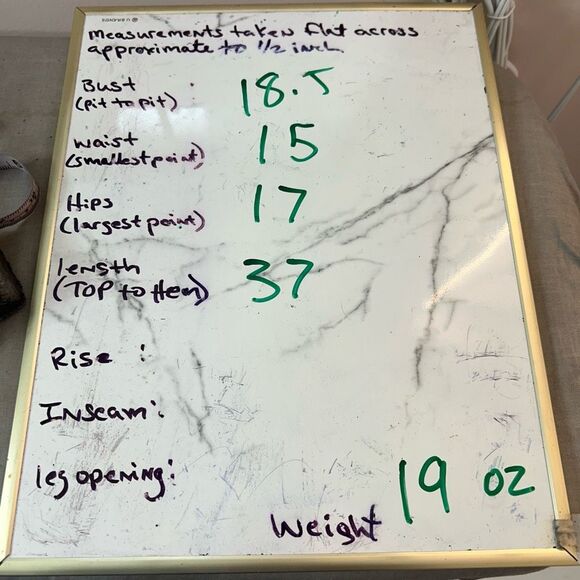 Measurements taken flat across
approximate to 1/2 inch
Bust 18.5
(pit to pit)
Waist 15
(smallest point)
Hips 17
(largest point)
length 37
(TOP to Hem)
Rise :
Inseam:
leg opening:
Weight 19 oz